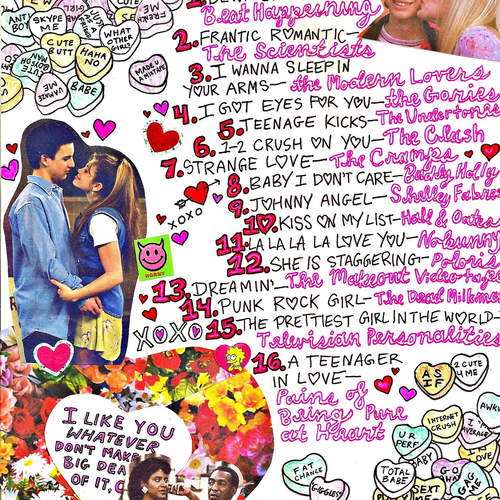 Beat Happening
2. FRANTIC ROMANTIC—
The Scientists
3. I WANNA SLEEP IN
YOUR ARMS— the Modern Lovers
4. I GOT EYES FOR YOU— the Gories
5. TEENAGE KICKS— The Undertones
6. 1-2 CRUSH ON YOU— The Clash
7. STRANGE LOVE— The Cramps
8. BABY I DON'T CARE— Buddy Holly
9. JOHNNY ANGEL— Shelley Fabres
10. KISS ON MY LIST— Hall & Oates
11. LA LA LA LA LOVE YOU— Nobunny
12. SHE IS STAGGERING— Polaris
13. DREAMIN'— The Makeout Videotapes
14. PUNK ROCK GIRL— The Dead Milkmen
15. THE PRETTIEST GIRL IN THE WORLD—
Television Personalities
16. A TEENAGER
IN LOVE—
Pains of
Being Pure
at Heart
ANT
BOY
SKYPE
ME
CUTE
BUTT
HAHA
NO
WHAT
OTHER
GIRL?
MADE U
A MIXTAPE
BABE
XOXO
HORNY
XOXO
I LIKE YOU
WHATEVER
DON'T MAKE
BIG DEA
OF IT,
AS
IF
2 CUTE
4 ME
INTERNET
CRUSH
U R
PERF
TOTAL
BABE
FAT
CHANCE
GIGGLES
SEXT